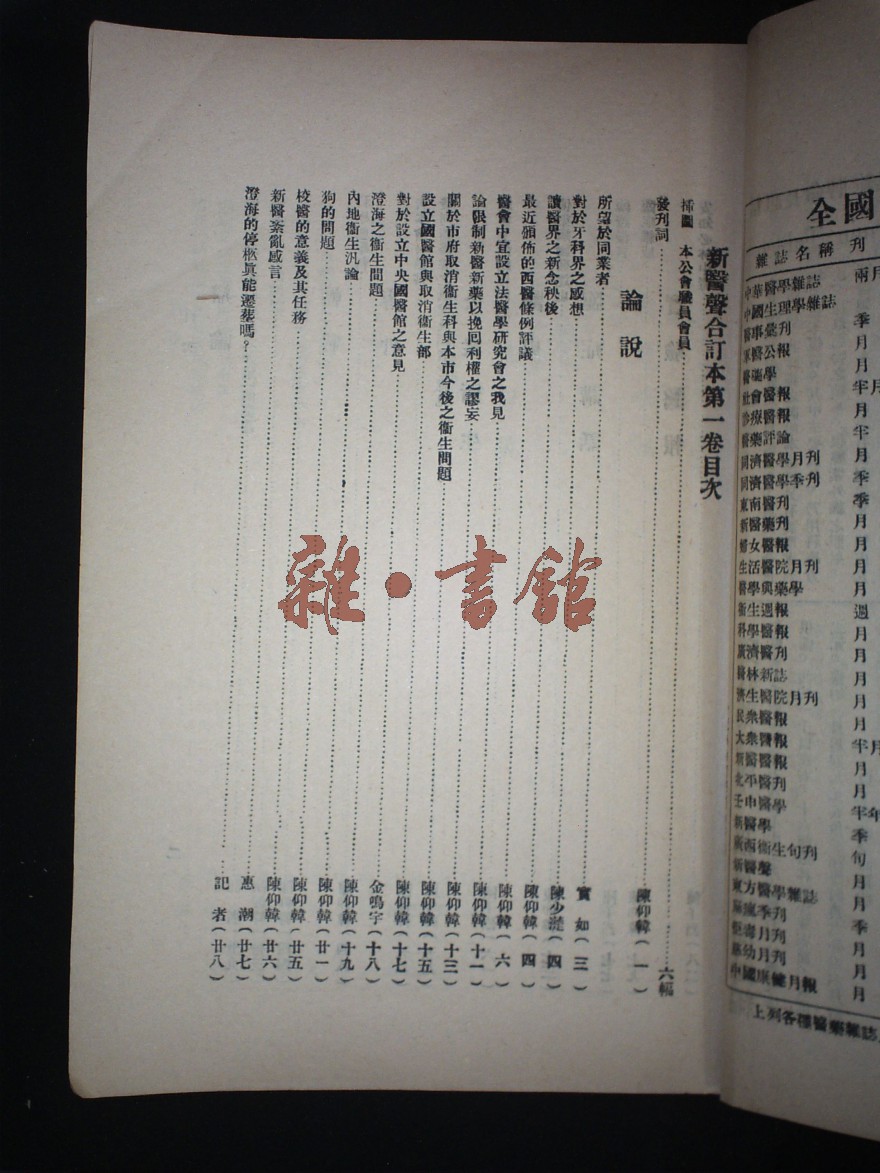 新醫聲合訂本第一卷目次
插圖 本公會職員會員……六幅
發刊詞……陳仰韓(一)
論說
所望於同業者……寅 如(三)
對於牙科界之感想……陳少漣(四)
讀醫界之新念秧後……陳仰韓(四)
最近頒佈的西醫條例評議……陳仰韓(六)
醫會中宜設立法醫學研究會之我見……陳仰韓(十一)
論限制新醫新藥以挽回利權之謬妄……陳仰韓(十三)
關於市府取消衞生科與本市今後之衞生問題……陳仰韓(十五)
設立國醫館與取消衞生部……陳仰韓(十七)
對於設立中央國醫館之意見……金鳴宇(十八)
澄海之衞生問題……陳仰韓(十九)
內地衞生汎論……陳仰韓(廿一)
狗的問題……陳仰韓(廿五)
校醫的意義及其任務……陳仰韓(廿六)
新醫紊亂感言……惠 潮(廿七)
澄海的停柩眞能遷葬嗎?……記 者(廿八)
雜·書館
全國
雜誌名稱 刊
中華醫學雜誌 兩月
中國生理學雜誌 季
醫事彙刊 月
軍醫公報 月
醫藥學 月
社會醫報 半月
診療醫報 月
醫藥評論 半
同濟醫學月刊 月
同濟醫學季刊 季
東南醫刊 季
新醫藥刊 月
婦女醫報 月
生活醫院月刊 月
醫學與藥學 月
衞生週報 週
科學醫報 月
廣濟醫刊 月
醫林新誌 月
濟生醫院月刊 月
民衆醫報 月
大衆醫報 半月
新醫醫報 月
北平醫刊 月
壬申醫學 半年
新醫學 季
廣西衞生旬刊 旬
新醫聲 月
東方醫學雜誌 月
麻瘋季刊 季
拒毒月刊 月
慈幼月刊 月
中國康健月報 月
上列各種醫藥雜誌